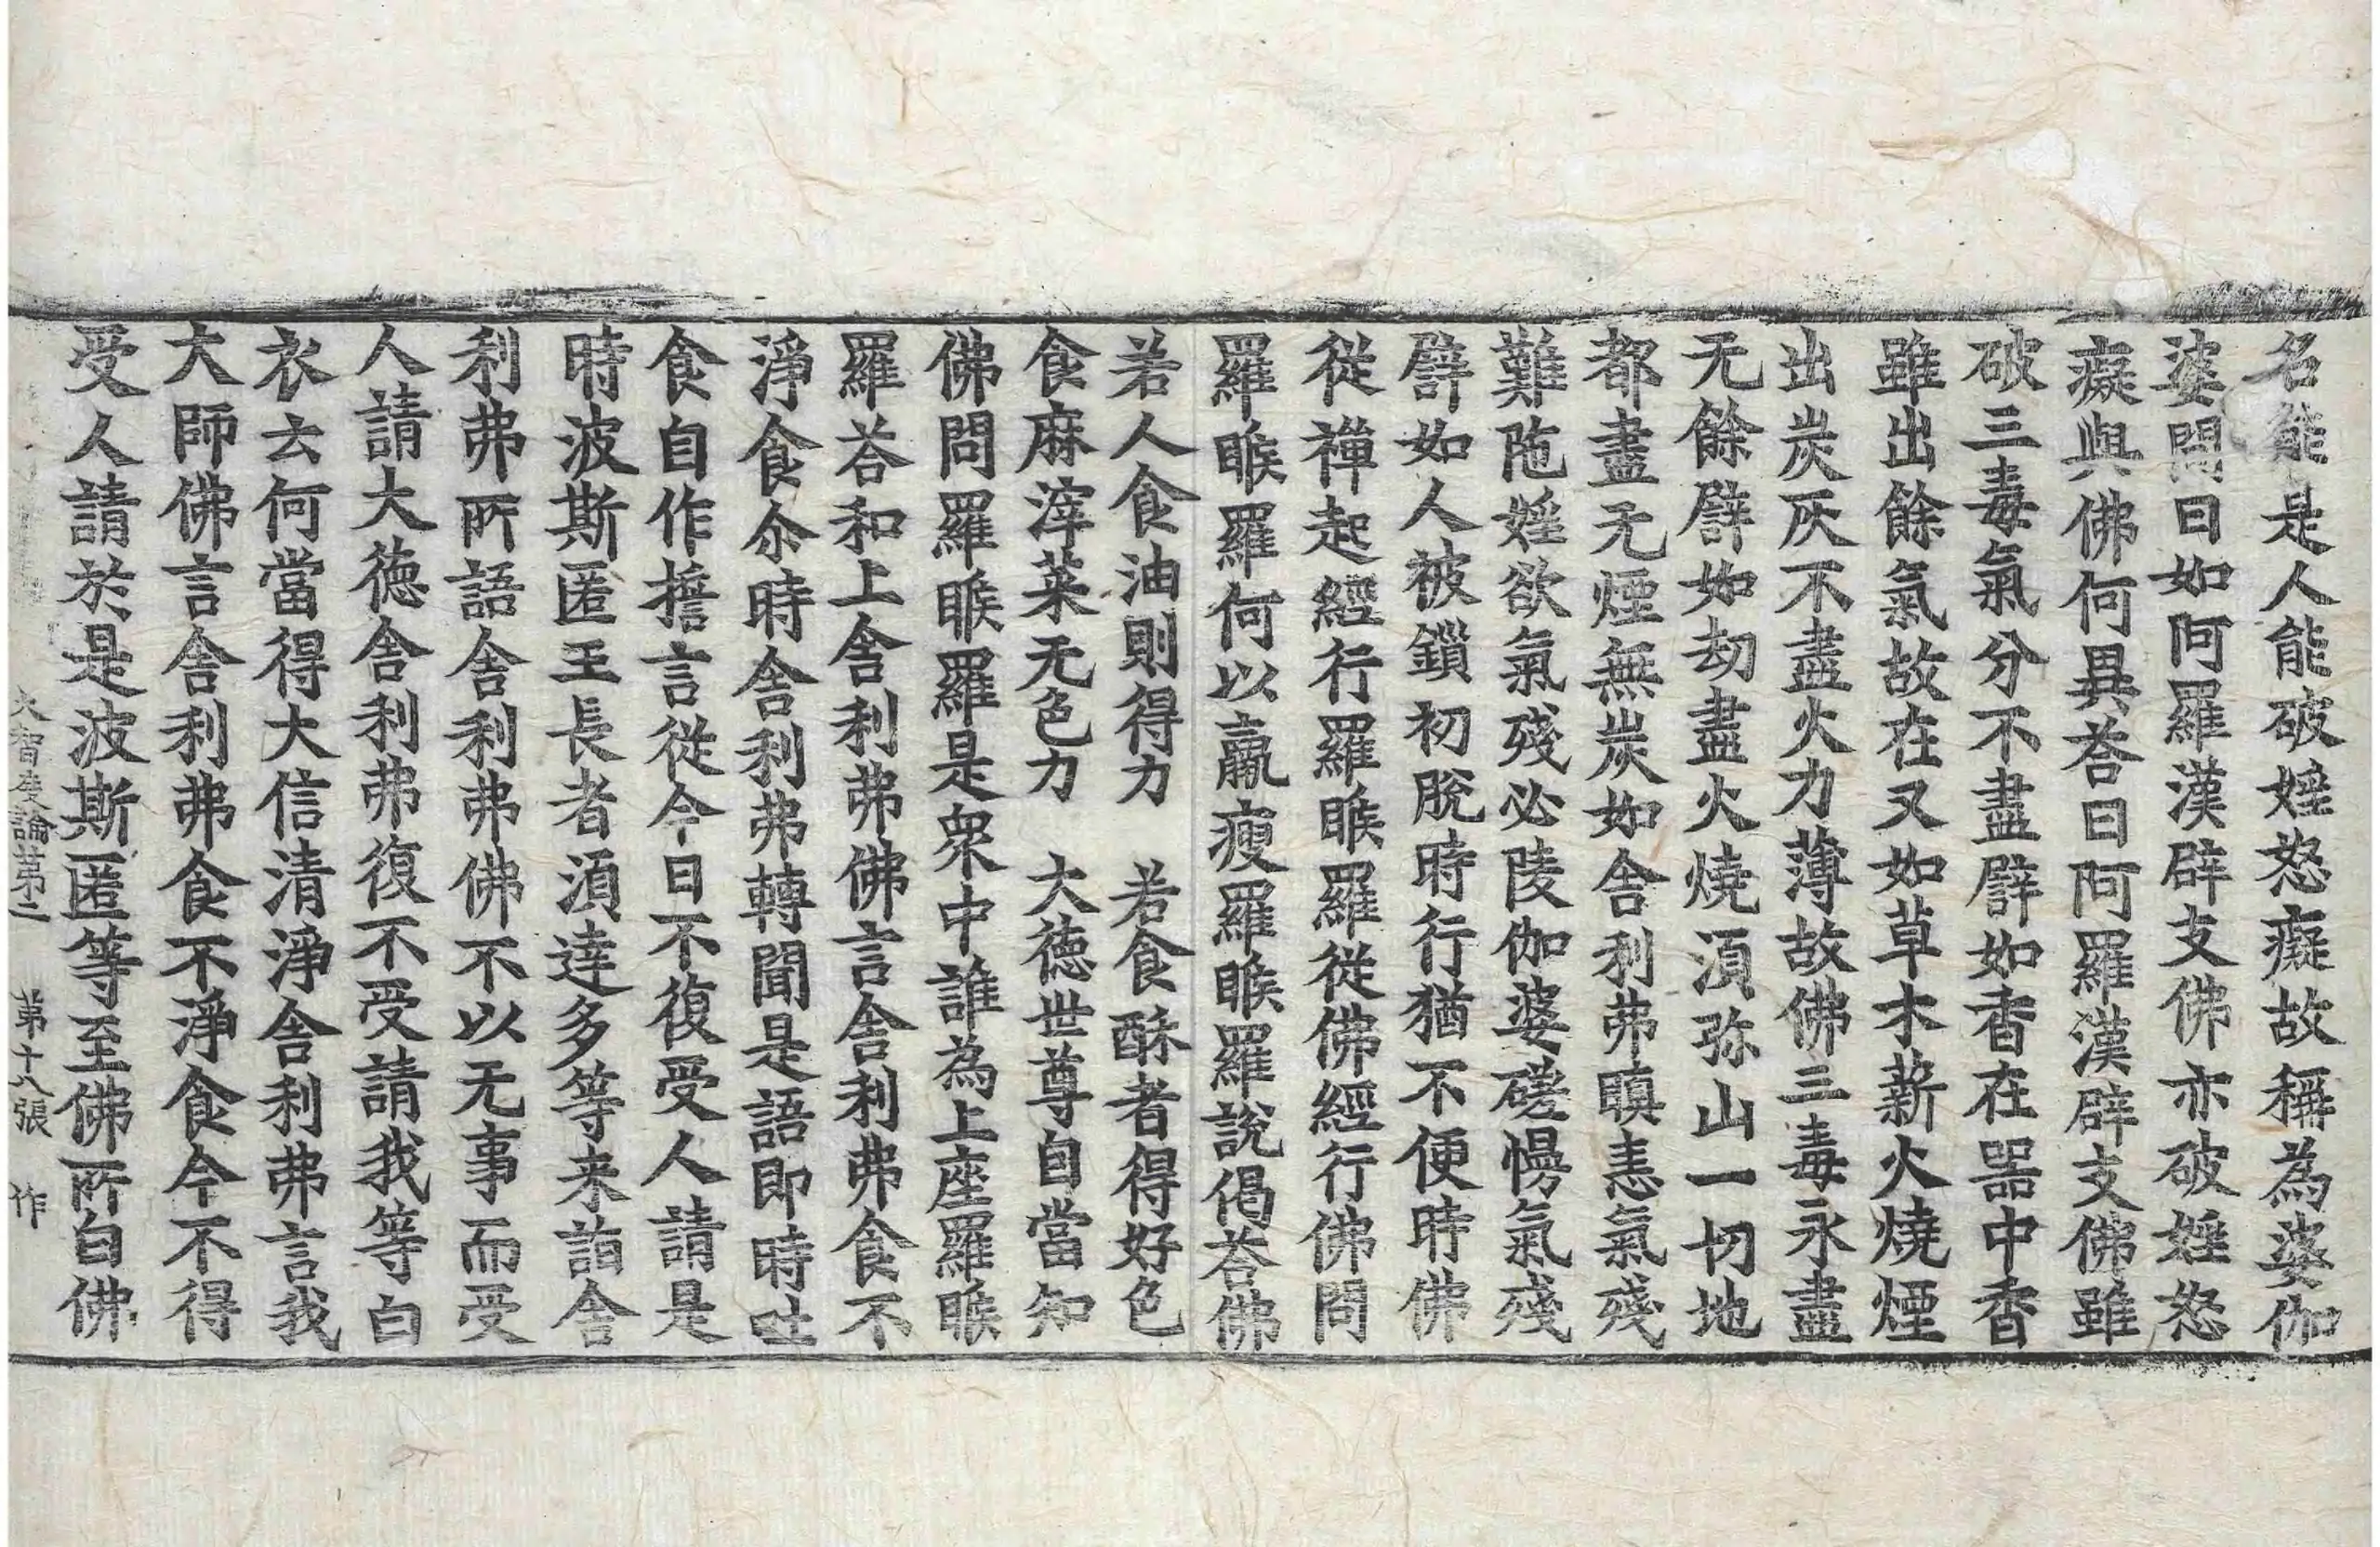 名能是人能破婬怒癡故稱為婆伽
婆問曰如阿羅漢辟支佛亦破婬怒
癡與佛何異荅曰阿羅漢辟支佛雖
破三毒氣分不盡譬如香在器中香
雖出餘氣故在又如草木薪火燒煙
出炭灰不盡火力薄故佛三毒永盡
无餘譬如劫盡火燒湏弥山一切地
都盡无煙無炭如舎利弗瞋恚氣殘
難陁婬欲氣殘必陵伽婆磋慢氣殘
譬如人被鎖初脫時行猶不便時佛
從禪起經行羅睺羅從佛經行佛問
羅睺羅何以羸瘦羅睺羅說偈荅佛
若人食油則得力　若食酥者得好色
食麻滓菜无色力　大德世尊自當知
佛問羅睺羅是衆中誰為上座羅睺
羅荅和上舎利弗佛言舎利弗食不
淨食尒時舎利弗轉聞是語即時吐
食自作擔言從今日不復受人請是
時波斯匿王長者湏達多等来詣舎
利弗所語舎利弗佛不以无事而受
人請大德舎利弗復不受請我等白
衣云何當得大信清淨舎利弗言我
大師佛言舎利弗食不淨食今不得
受人請於是波斯匿等至佛所白佛
大智度論第二　第十八張　作